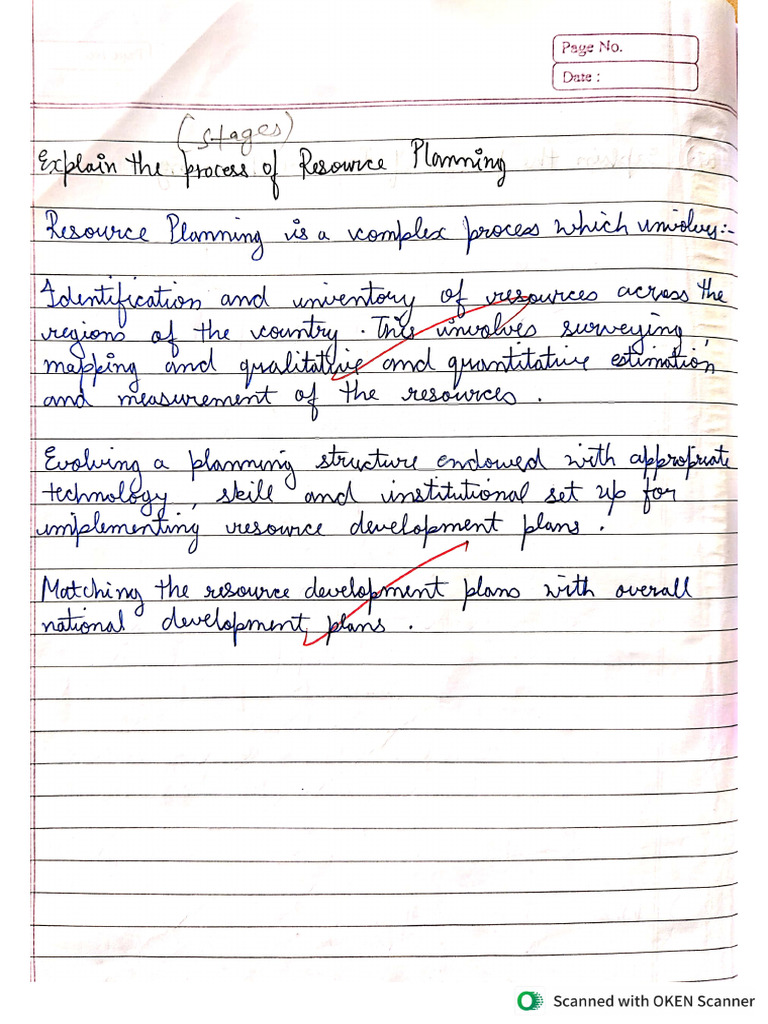 Page No.
Date :
(stages)
Explain the process of Resource Planning
Resource Planning is a complex process which involves:-
Identification and inventory of resources across the
regions of the country. This involves surveying,
mapping and qualitative and quantitative estimation
and measurement of the resources.
Evolving a planning structure endowed with appropriate
technology, skill and institutional set up for
implementing resource development plans.
Matching the resource development plans with overall
national development plans.
Scanned with OKEN Scanner